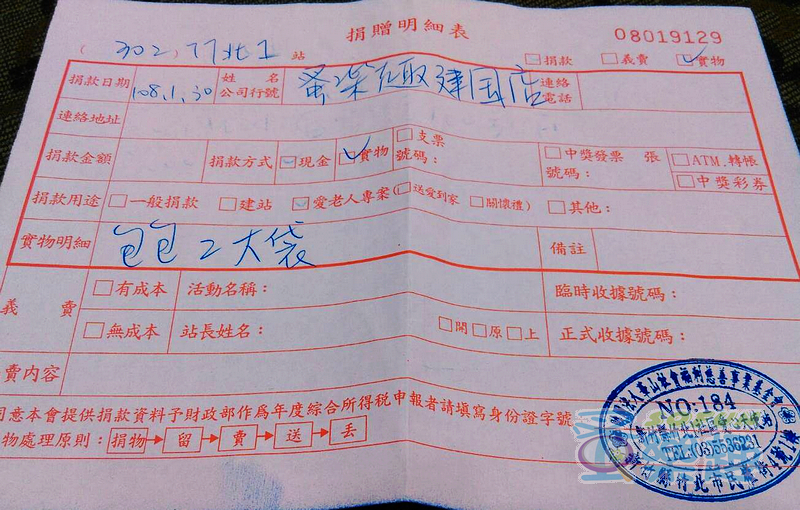 捐贈明細表
08019129
(302)竹北1站
□捐款 □義賣 ☑實物
捐款日期 108.1.30 姓名 公司行號 蚤樂 取建国店 連絡電話
連絡地址
捐款金額 捐款方式 □現金 ☑實物 □支票 號碼： □中獎發票 張 號碼： □ATM.轉帳 □中獎彩券
捐款用途 □一般捐款 □建站 □愛老人專案(□送愛到家 □關懷禮) □其他：
實物明細 包包2大袋 備註
義賣 □有成本 活動名稱： 臨時收據號碼：
□無成本 站長姓名： □開□原□上 正式收據號碼：
賣內容
同意本會提供捐款資料予財政部作為年度綜合所得稅申報者請填寫身份證字號
物處理原則：捐物→留→賣→送→丟
法人華山社會福利慈善事業基金會
NO:184
TEL:(03)5536231
新竹縣竹北市民權街